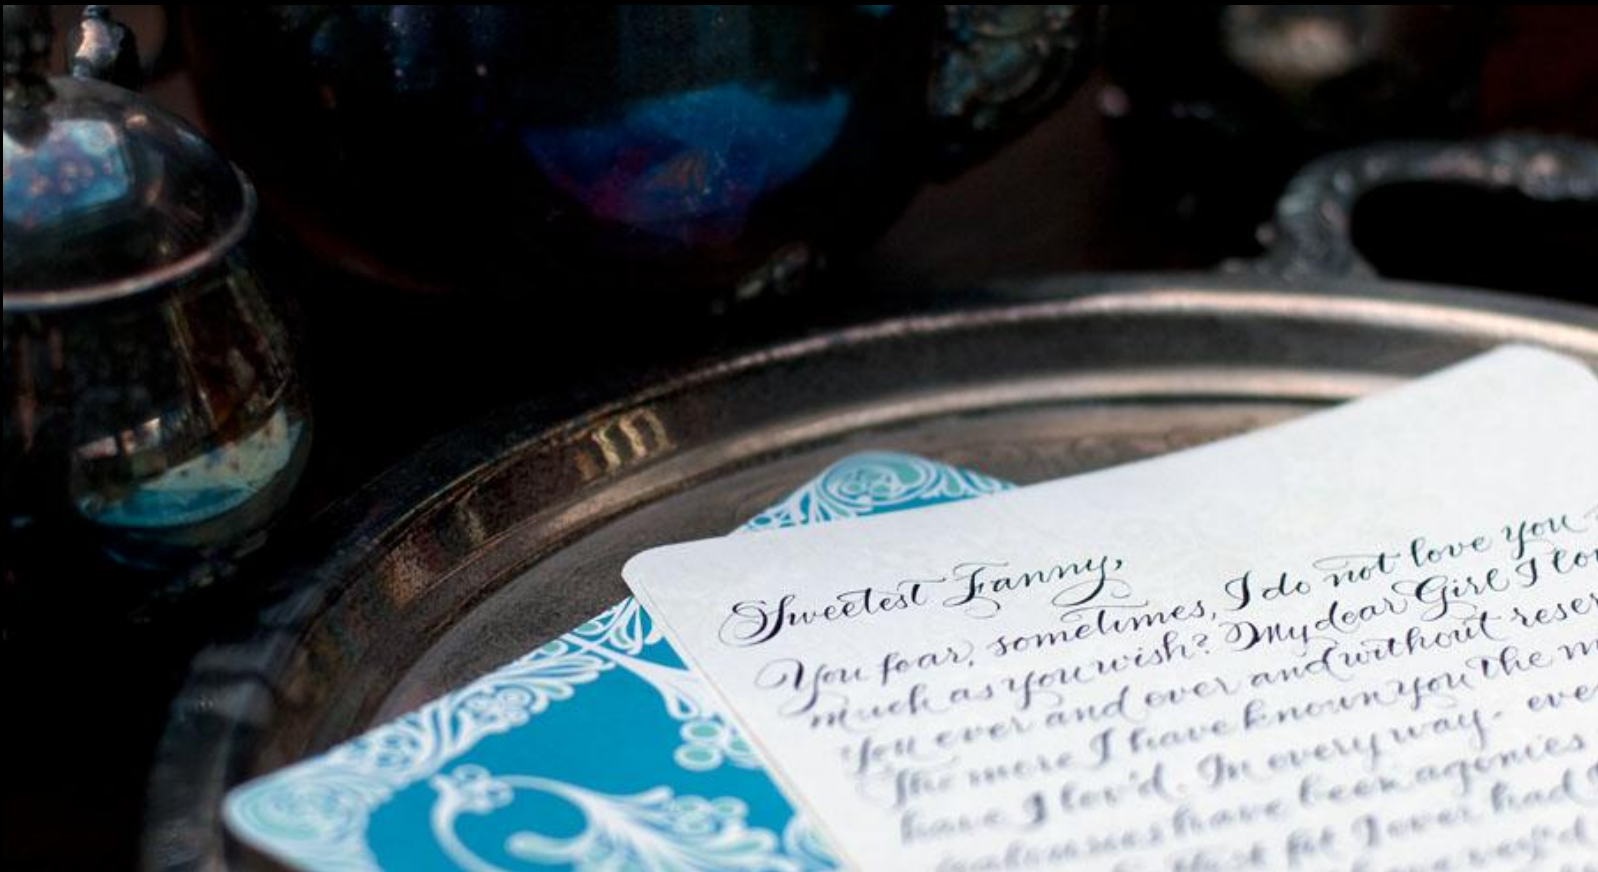 Sweetest Fanny,
You fear, sometimes, I do not love you
much as you wish? My dear Girl I lov
you ever and ever and without reser
The more I have known you the m
have I lov'd. In every way - eve
jealousies have been agonies
hottest fit I ever had I
have vex'd